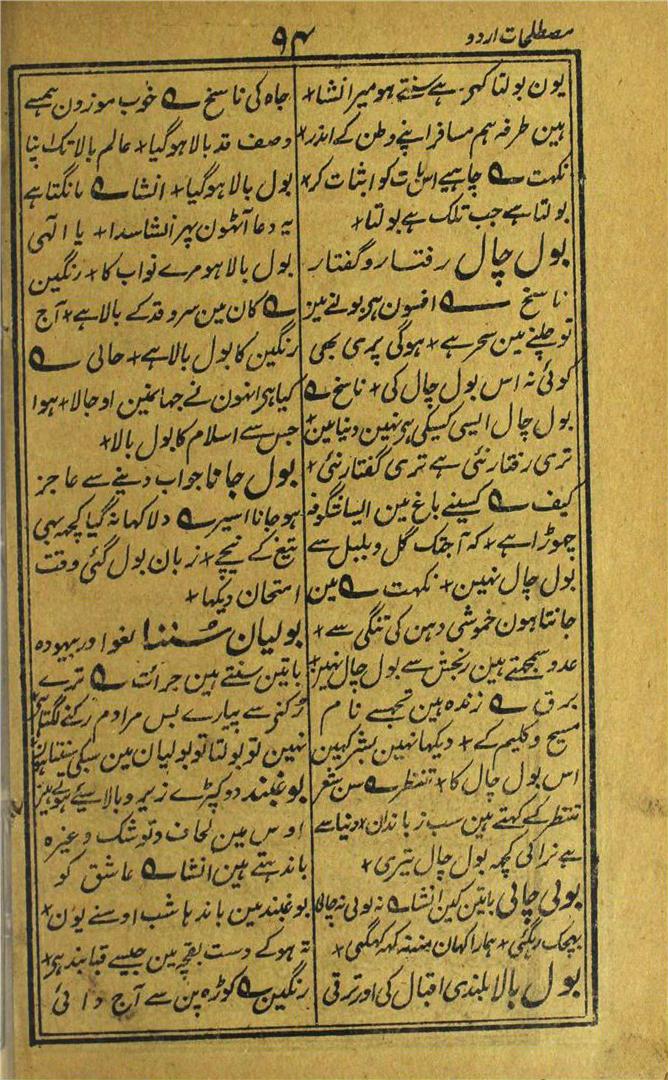 مصطلحات اردو
۹۴
یون بولتا کہ ہے سنتے ہو میر انشا٭
ہین طرفہ ہم مسافر اپنے وطن کے اندر٭
نکہت ؎ چاہیے اس بات کو اثبات کر٭
بولتا ہے جب تلک ہے بولتا٭
بول چال رفتار و گفتار
ناسخ ؎ افسون ہی بولنے مین
تو چلنے مین سحر ہے٭ ہوگی پری بھی
کوئی نہ اس بول چال کی٭ ناسخ ؎
بول چال ایسی کسیکی ہی نہین دنیا مین٭
تری رفتار نئی ہے تری گفتار نئی٭
کیف ؎ کسینے باغ مین ایسا شگوفہ
چھوڑا ہے٭ کہ آجتک گل و بلبل سے
بول چال نہین٭ نکہت ؎ مین
جانتا ہون خموشی دہن کی تنگی سے٭
عدو سمجھتے ہین رنجش سے بول چال نہین٭
برق ؎ زندہ ہین تجھسے نام
مسیح و کلیم کے٭ دیکھا نہین بشر کہین
اس بول چال کا٭ تنفظر ؎ سن شعر
تنتظر کے کہتے ہین سب زباندان٭ دنیا سے
ہے نرالی کچھ بول چال تیری٭
بولی چالی باتین کین انشا ؎ نہ بولی نہ چالی
بھچک رہگئی٭ ہمارا کہان منہ کہ کہگئی٭
بول بالا بلندی اقبال کی اور ترقی
جاہ کی ناسخ ؎ خوب موزون ہمسے
وصف قد بالا ہوگیا٭ عالم بالا تک اپنا
بول بالا ہوگیا٭ انشا ؎ مانگتا ہے
یہ دعا آٹھون پہر انشا سدا٭ یا الٰہی
بول بالا ہو مرے نواب کا٭ رنگین
؎ کان مین سرو قد کے بالا ہے٭ آج
رنگین کا بول بالا ہے٭ حالی ؎
کیا ہی انہون نے جہانمین اوجالا٭ ہوا
جس سے اسلام کا بول بالا٭
بول جانا جواب دینے سے عاجز
ہو جانا اسیر ؎ دلا کہا نہ گیا کچھ بہی
تیغ کے نیچے٭ زبان بول گئی وقت
امتحان دیکھا٭
بولیان سننا لغو اور بیہودہ
باتین سنتے ہین جرائت ؎ ترے
رکنی سے پیارے بس مرا دم رکنے لگتا ہی
نہین تو بولتا تو بولیان مین سبکی سنتا ہون
بوغبند دو کپڑے زیر و بالا سیے ہوئے ہین
اوس مین لحاف و توشک وغیرہ
باندہتے ہین انشا ؎ عاشق کو
بوغبند مین باندہا شب اوسنے یون٭
تہ ہو کے دست بقچہ مین جیسے قبا بند ہی٭
رنگین ؎ کوڑہ پن سے آج دائی